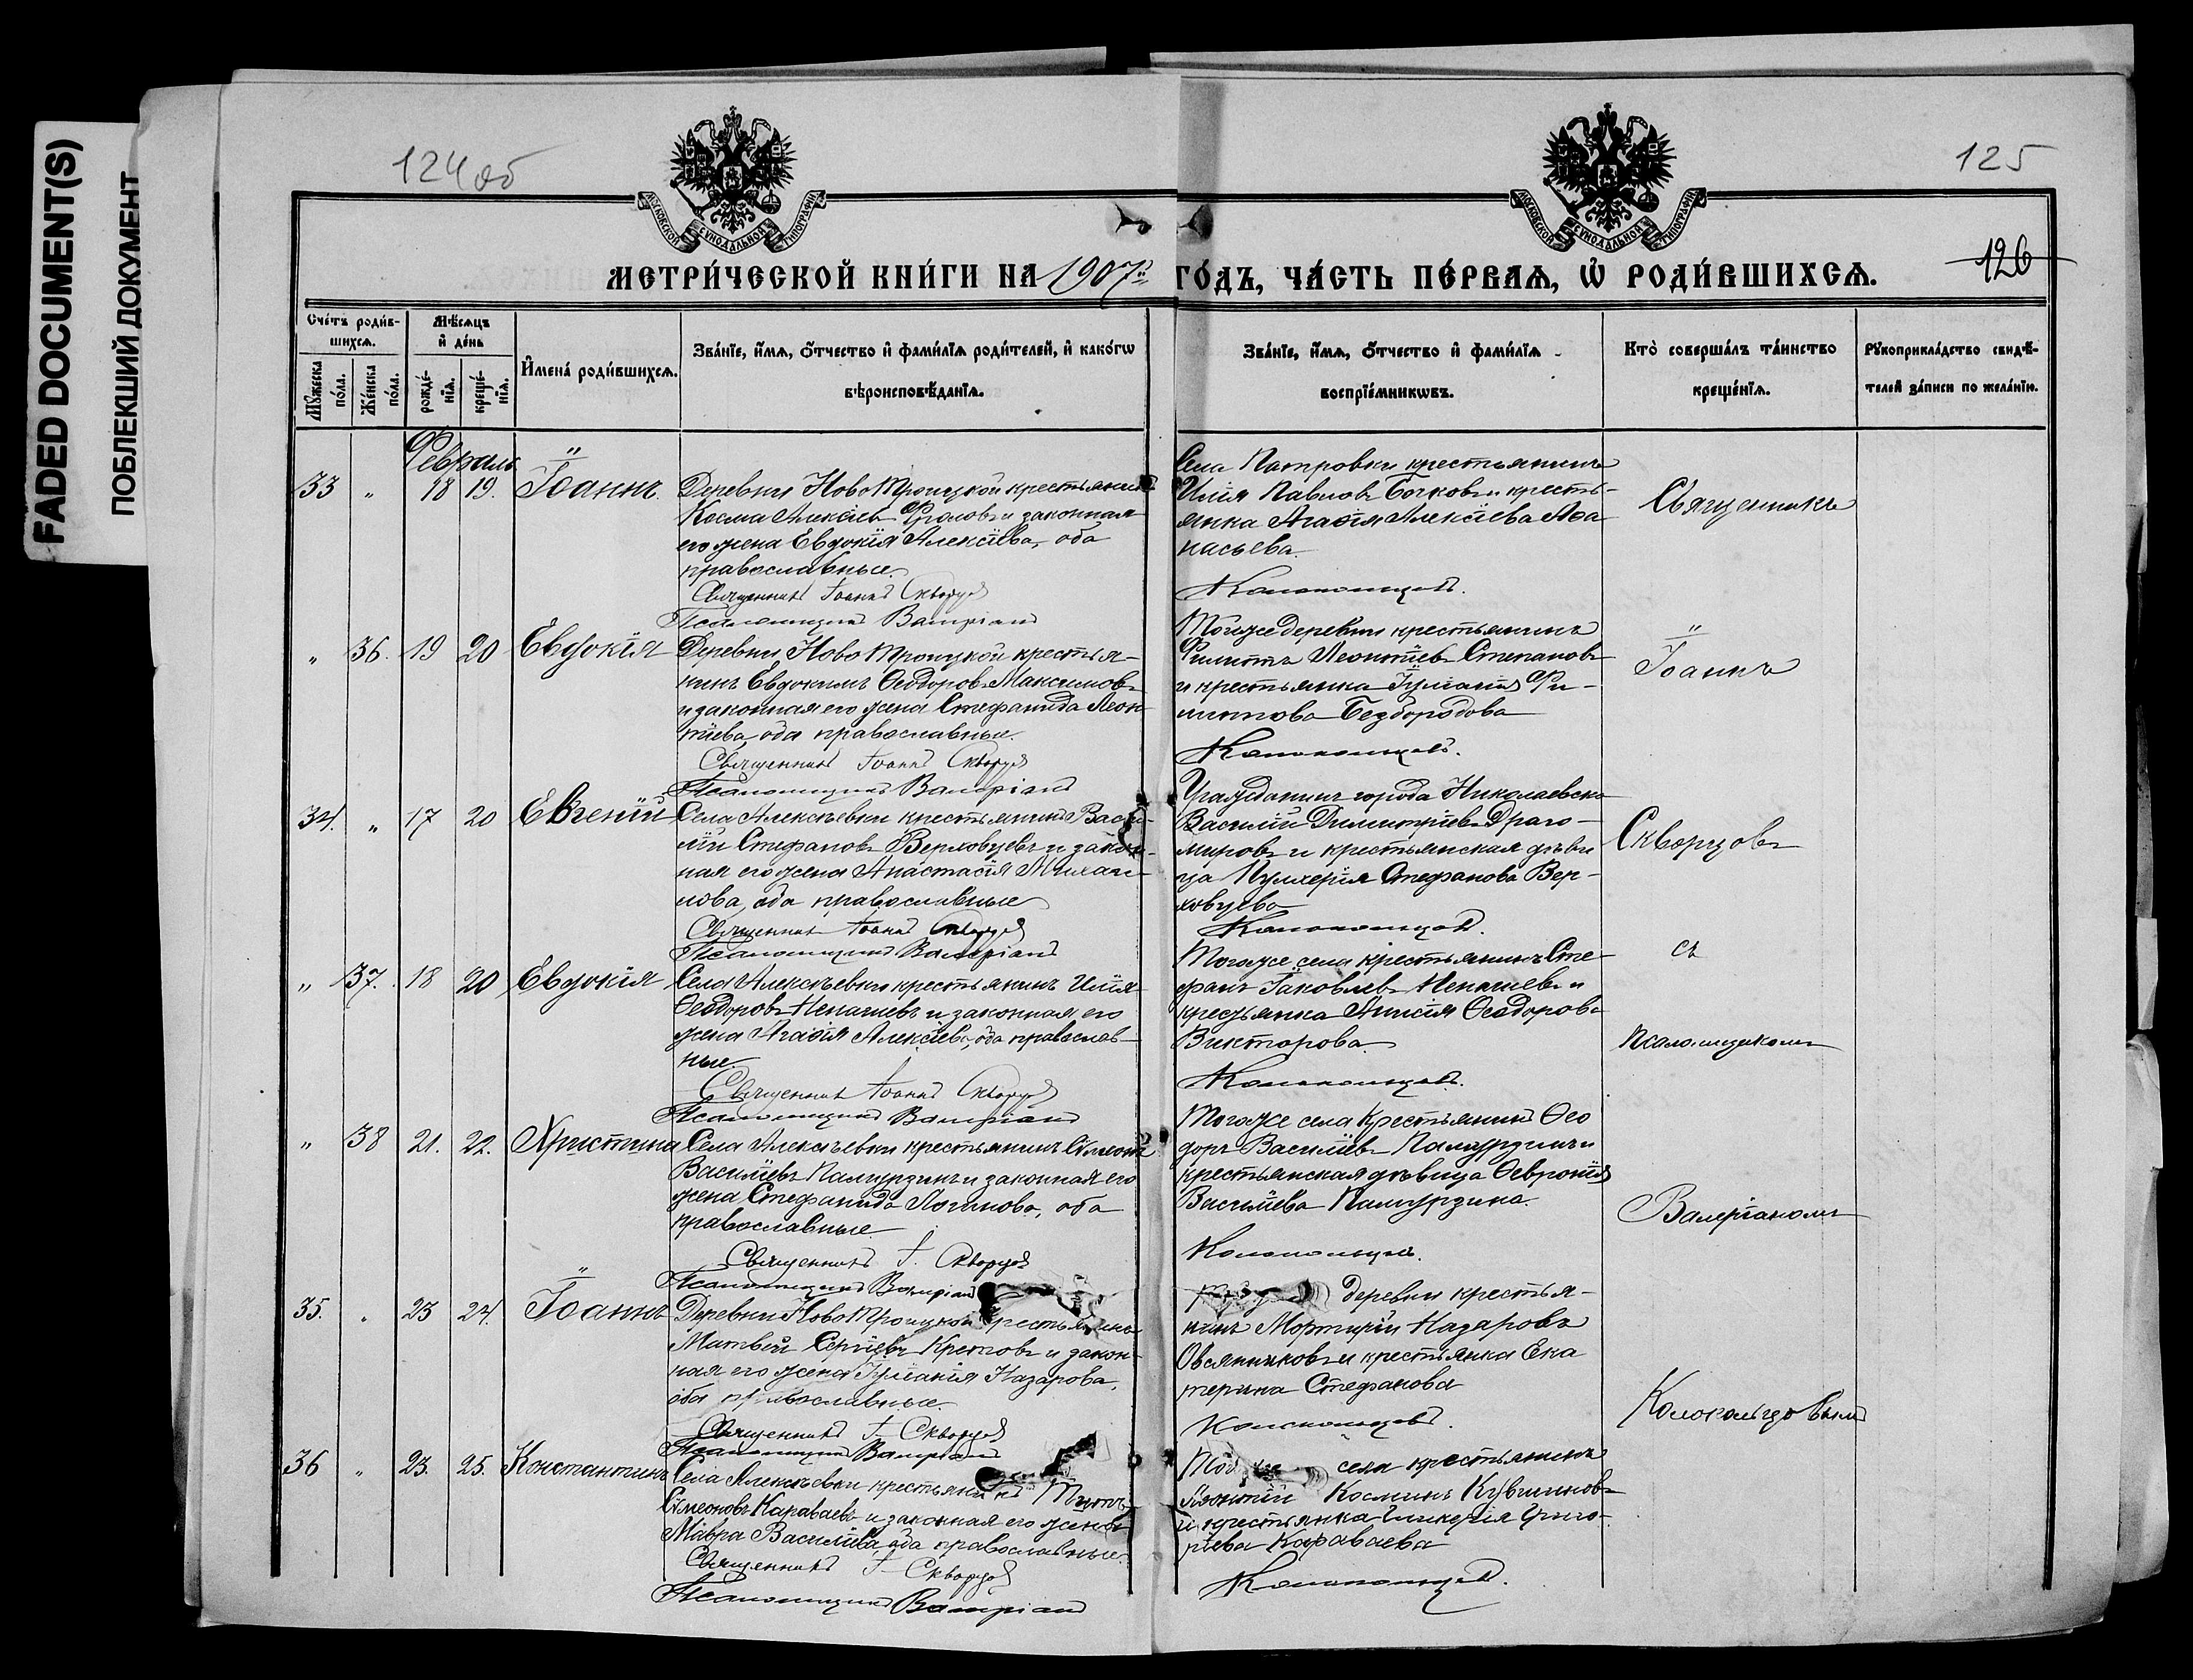 FADED DOCUMENT(S)
ПОБЛЕКШИЙ ДОКУМЕНТ
124 об
125
126
МОСКОВСКОЙ СѴНОДАЛЬНОЙ ТИПОГРАФІИ
МОСКОВСКОЙ СѴНОДАЛЬНОЙ ТИПОГРАФІИ
МЕТРИ́ЧЕСКОЙ КНИ́ГИ НА 1907й ГО́ДЪ, ЧА́СТЬ ПЕ́РВАѦ, Ѽ РОДИ́ВШИХСѦ.
Сче́тъ роди́в-
шихсѧ.
Мꙋ́жеска по́ла.
Же́нска по́ла.
Мѣ́сѧцъ
и҆ де́нь
рожде́-
нїѧ.
креще́-
нїѧ.
И҆мена̀ роди́вшихсѧ.
Зва́нїе, и҆́мѧ, ѻ҆́тчество и҆ фами́лїѧ роди́телей, и҆ како́гѡ
вѣроисповѣ́данїѧ.
Зва́нїе, и҆́мѧ, ѻ҆́тчество и҆ фами́лїѧ
воспрїе́мникѡвъ.
Кто̀ соверша́лъ та́инство
креще́нїѧ.
Рꙋкоприкла́дство свидѣ́-
телей за́писи по жела́нїю.
Февраль
33 " 18 19. Іоаннъ.
Деревни Ново Троицкой крестьянинъ
Косма Алексіевъ Фроловъ и законная
его жена Евдокія Алексіева, оба
православные.
Священникъ Іоаннъ Скворцовъ
Псаломщикъ Валеріанъ
Села Патровки крестьянинъ
Илія Павловъ Бочковъ и кресть-
янка Агаѳія Алексіева Аѳа
насьева.
Колокольцовъ.
" 36. 19 20 Евдокія
Деревни Ново Троицкой крестья-
нинъ Евдокимъ Ѳеодоровъ Максимовъ
и законная его жена Стефанида Леон
тіева, оба православные.
Священникъ Іоаннъ Скворцовъ
Псаломщикъ Валеріанъ
Тойже деревни крестьянинъ
Филиппъ Леонтіевъ Степановъ
и крестьянка Іуліанія Фи-
липпова Безбородова
Колокольцовъ.
34. " 17 20 Евгеній
Села Алексѣевки крестьянинъ Васи-
лій Стефановъ Верховцевъ и закон-
ная его жена Анастасія Михаи-
лова, оба православные
Священникъ Іоаннъ Скворцовъ
Псаломщикъ Валеріанъ
Гражданинъ города Николаевска
Василій Димитріевъ Драго-
мировъ и крестьянская дѣви
ца Пулхерія Стефанова Вер-
ховцева
Колокольцовъ.
" 37. 18 20 Евдокія
Села Алексѣевки крестьянинъ Илія
Ѳеодоровъ Ненашевъ и законная его
жена Агаѳія Алексіева, оба православ-
ные.
Священникъ Іоаннъ Скворцовъ
Псаломщикъ Валеріанъ
Тогоже села крестьянинъ Сте-
фанъ Іаковлевъ Ненашевъ и
крестьянка Анисія Ѳеодорова
Викторова.
Колокольцовъ.
" 38 21. 22. Христина
Села Алексѣевки крестьянинъ Сѵмеонъ
Василіевъ Палмурзинъ и законная его
жена Стефанида Логинова, оба
православные.
Священникъ І. Скворцовъ
Псаломщикъ Валеріанъ
Тогоже села крестьянинъ Ѳео
доръ Василіевъ Палмурзинъ и
крестьянская дѣвица Ѳевронія
Василіева Палмурзина.
Колокольцовъ.
35. " 23 24. Іоаннъ
Деревни Ново Троицкой крестьянинъ
Матвей Сергіевъ Кретовъ и закон-
ная его жена Іуліанія Назарова,
оба православные.
Священникъ І. Скворцовъ
Псаломщикъ Валеріанъ
деревни крестья-
нинъ Мартирій Назаровъ
Овсянниковъ и крестьянка Ека
терина Стефанова
Колокольцовъ.
36 " 23. 25. Константинъ
Села Алексѣевки крестьянинъ Титъ
Сѵмеоновъ Караваевъ и законная его жена
Мавра Василіева, оба православные.
Священникъ І. Скворцовъ
Псаломщикъ Валеріанъ
села крестьянинъ
Леонтій Космин Кувшиновъ
и крестьянка Гликерія Григо-
ріева Караваева
Колокольцовъ.
Священникъ
Іоаннъ
Скворцовъ
съ
Псаломщикомъ
Валеріаномъ
Колокольцовымъ